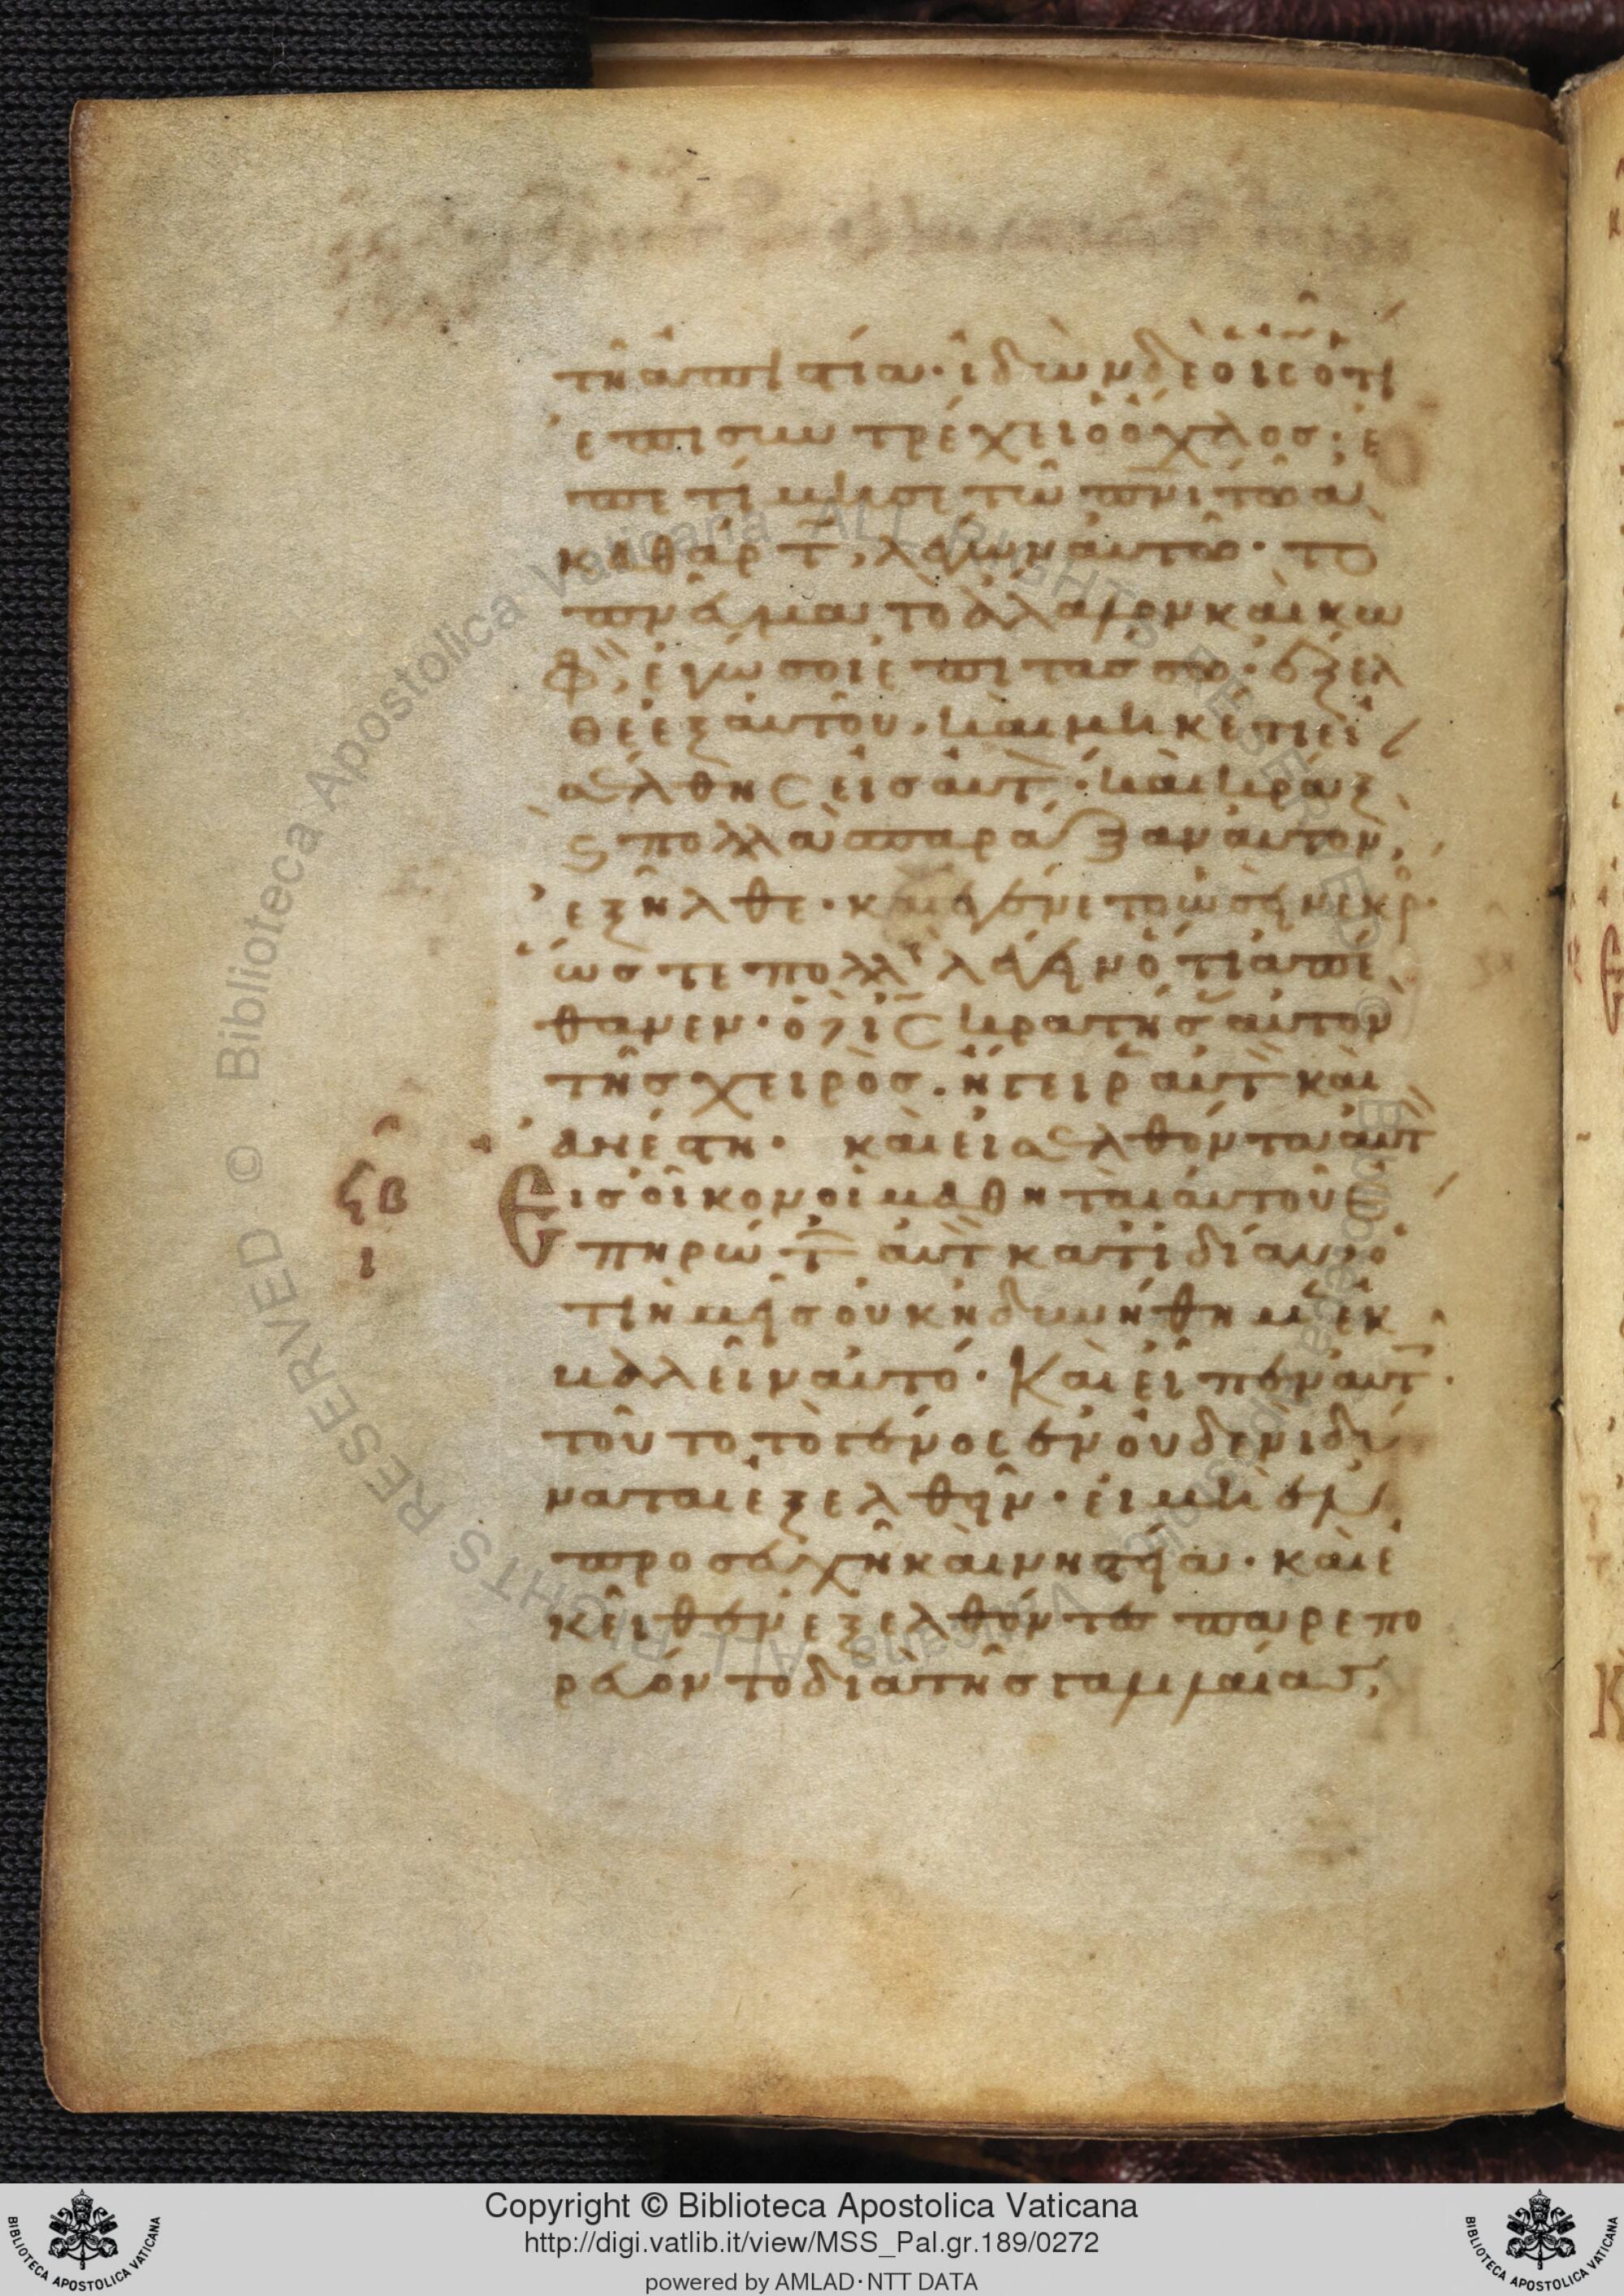 τῆ ἀπιστία· ἰδὼν δὲ ὁ ις ὅτι
ἐπισυντρέχει ὁ ὄχλος· ἐ
πετίμησε τῶ πνι τῶ ἀ
καθάρτ, λέγων αὐτῶ· τὸ
πνεῦμα τὸ ἄλαλον καὶ κω
φ, ἐγώ σοι ἐπιτάσσω· ἔξελ
θε ἐξ αὐτοῦ, καὶ μηκέτι εἰ
σέλθης εἰς αὐτ· καὶ κράξ
ς πολλὰ σπαράξαν αὐτὸν,
ἐξῆλθε· καὶ ἐγένετο ὡσεὶ νεκρ·
ὥστε πολλ λέγειν ὅτι ἀπέ
θανεν· ὁ δὲ ις κρατήσας αὐτὸν
τῆς χειρὸς· ἤγειρ αὐτ καὶ
ἀνέστη· καὶ εἰσελθόντα αὐτ
ϟβ
ι
Εἰς οἶκον οἱ μαθηταὶ αὐτοῦ ἐ
πηρώτ αὐτ κατιδίαν· ὅ
τι ἡμεῖς οὐκ ἠδυνήθημεν ἐκ
βαλεῖν αὐτό· Καὶ εἶπεν αὐτ·
τοῦτο τὸ γένος ἐν οὐδενὶ δύ
ναται ἐξελθεῖν· εἰ μὴ ἐν
προσευχῆ καὶ νηστεία· καὶ ἐ
κεῖθεν ἐξελθόντες παρεπο
ρεύοντο διὰ τῆς γαλιλαίας,
Copyright © Biblioteca Apostolica Vaticana
http://digi.vatlib.it/view/MSS_Pal.gr.189/0272
powered by AMLAD·NTT DATA
BIBLIOTECA APOSTOLICA VATICANA
BIBLIOTECA APOSTOLICA VATICANA
Biblioteca Apostolica Vaticana ALL RIGHTS RESERVED ©
Biblioteca Apostolica Vaticana ALL RIGHTS RESERVED ©